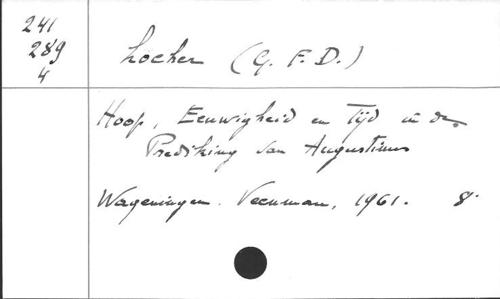 241
289
4
Locher (G. F. D.)
Hoop, Eeuwigheid en Tijd in de
Prediking van Augustinus
Wageningen. Veenman, 1961. 8°